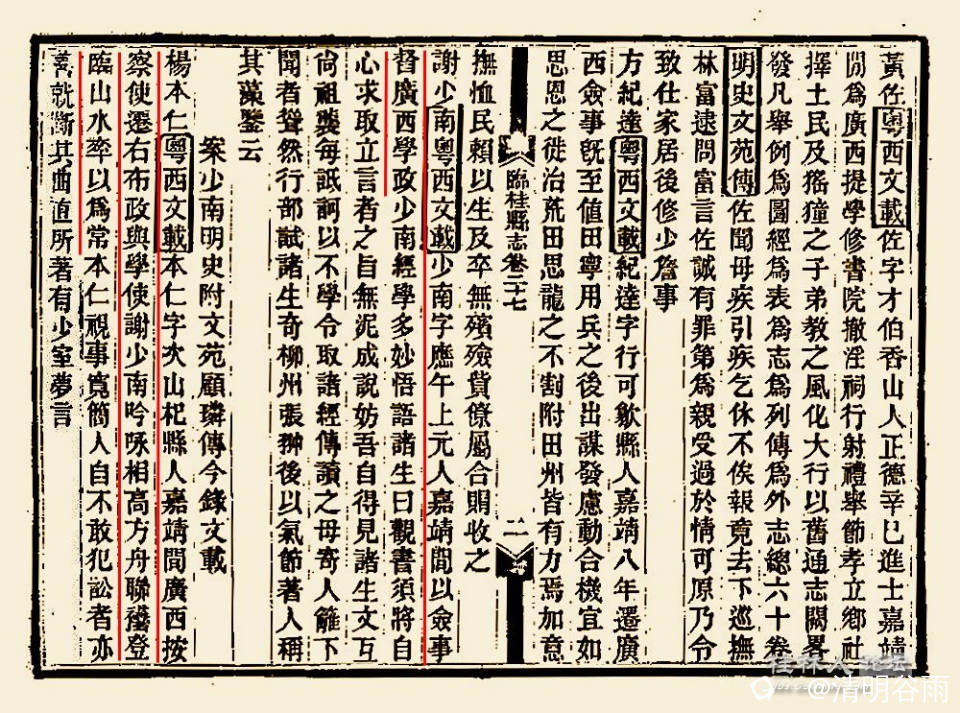 黃佐粵西文載佐字才伯香山人正德辛巳進士嘉靖
間爲廣西提學修書院撤淫祠行射禮舉節孝立鄉社
擇土民及猺獞之子弟敎之風化大行以舊通志闕畧
發凡舉例爲圖經爲表爲志爲列傳爲外志總六十卷
明史文苑傳佐聞母疾引疾乞休不俟報竟去下巡撫
林富逮問富言佐誠有罪第爲親受過於情可原乃令
致仕家居後修少詹事
方紀達粵西文載紀達字行可歙縣人嘉靖八年遷廣
西僉事旣至値田寧用兵之後出謀發慮動合機宜如
思恩之徙治荒田思龍之不割附田州皆有力焉加意
臨桂縣志卷二十七
二
撫恤民賴以生及卒無殯殮貲僚屬合賻收之
謝少南粵西文載少南字應午上元人嘉靖間以僉事
督廣西學政少南經學多妙悟語諸生曰觀書須將自
心求取立言者之旨無泥成說妨吾自得見諸生文互
尙祖襲每詆訶以不學令取諸經傳讀之毋寄人籬下
聞者聳然行部試諸生奇柳州張翀後以氣節著人稱
其藻鑒云
案少南明史附文苑顧璘傳今錄文載
楊本仁粵西文載本仁字次山杞縣人嘉靖間廣西按
察使遷右布政與學使謝少南吟咏相高方舟聯襼登
臨山水率以爲常本仁視事寬簡人自不敢犯訟者亦
喜就斷其曲直所著有少室夢言
桂林人論壇
@清明谷雨